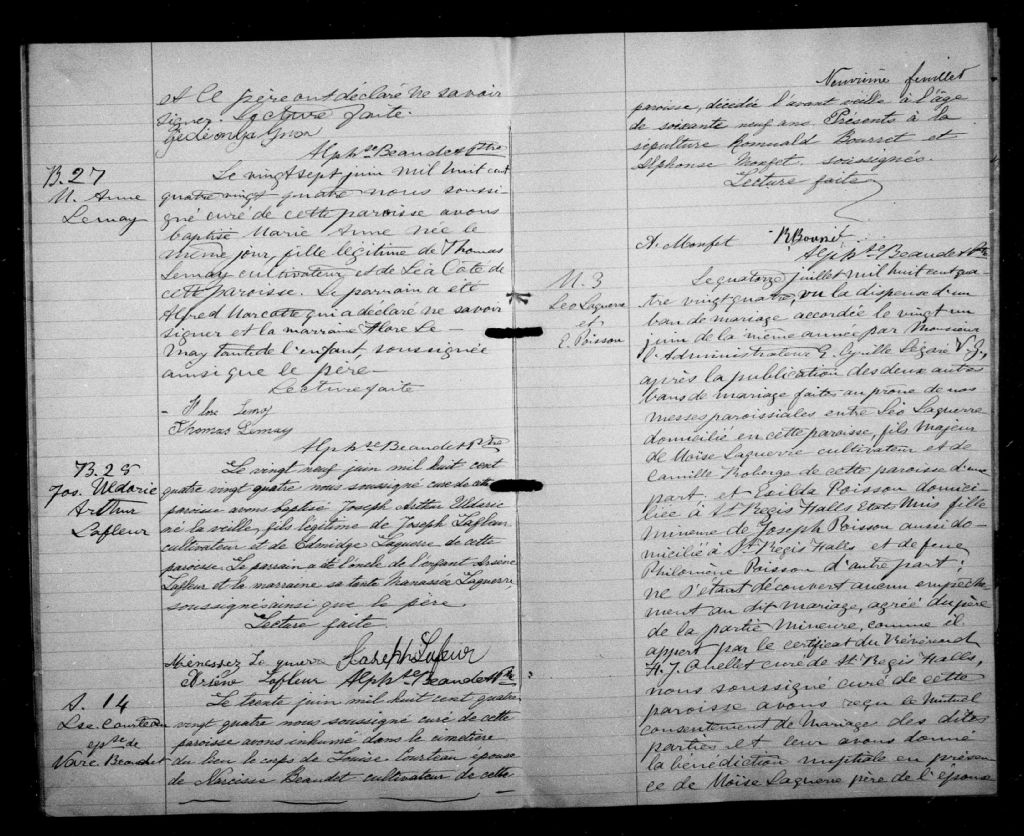 et le père ont déclaré ne savoir
signer. Lecture faite.
Gédéon Gagnon
Alph.se Beaudet Ptre
B. 27
M. Anne
Lemay
Le vingt sept juin mil huit cent
quatre vingt quatre nous soussi-
gné curé de cette paroisse avons
baptisé Marie Anne née le
même jour, fille légitime de Thomas
Lemay cultivateur et de Léa Coté de
cette paroisse. Le parrain a été
Alfred Marcotte qui a déclaré ne savoir
signer et la marraine Flore Le-
may tante de l'enfant, soussignée
ainsi que le père—
Lecture faite
Flore Lemay
Thomas Lemay
Alph.se Beaudet Ptre
B. 28
Jos. Uldaric
Arthur
Lafleur
Le vingt neuf juin mil huit cent
quatre vingt quatre nous soussigné curé de cette
paroisse avons baptisé Joseph Arthur Uldaric
né la veille, fils légitime de Joseph Lafleur
cultivateur et de Edmidge Laguerre de cette
paroisse. Le parrain a été l'oncle de l'enfant Arsène
Lafleur et la marraine sa tante Laguerre,
soussignés ainsi que le père.
Lecture faite
Laguerre Joseph Lafleur
Lafleur Alph.se Beaudet Ptre
S. 14
Lse. Courteau
epse de
Narc. Beaudet
Le trente juin mil huit cent quatre
vingt quatre nous soussigné curé de cette
paroisse avons inhumé dans le cimetière
du lieu le corps de Louise Courteau épouse
de Narcisse Beaudet cultivateur de cette
Neuvième feuillet
paroisse, décédée l'avant veille à l'âge
de soixante neuf ans. Présents à la
sépulture Romuald Bourret et
Alphonse Monfet soussignés.
Lecture faite
A. Monfet R Bourret
Alph.se Beaudet Ptre
M. 3
Léo Laguerre
et
E. Poisson
Le quatorze juillet mil huit cent qua-
tre vingt quatre, vu la dispense d'un
ban de mariage accordée le vingt un
juin de la même année par Monsieur
l'Administrateur E. Cyrille Légaré V.G.,
après la publication des deux autres
bans de mariage faites au prône de nos
messes paroissiales entre Léo Laguerre
domicilié en cette paroisse, fils majeur
de Moïse Laguerre cultivateur et de
Camille Roberge de cette paroisse d'une
part, et Exilda Poisson domici-
liée à St Regis Halls Etats Unis fille
mineure de Joseph Poisson aussi do-
micilié à St Regis Halls et de feue
Philomène Poisson d'autre part;
ne s'étant découvert aucun empêche
ment au dit mariage, agréé du père
de la partie mineure, comme il
appert par le certificat du Révérend
H. J. Ouellet curé de St Regis Halls,
nous soussigné curé de cette
paroisse avons reçu le mutuel
consentement de Mariage des dites
parties et leur avons donné
la bénédiction nuptiale en présen
ce de Moïse Laguerre père de l'époux